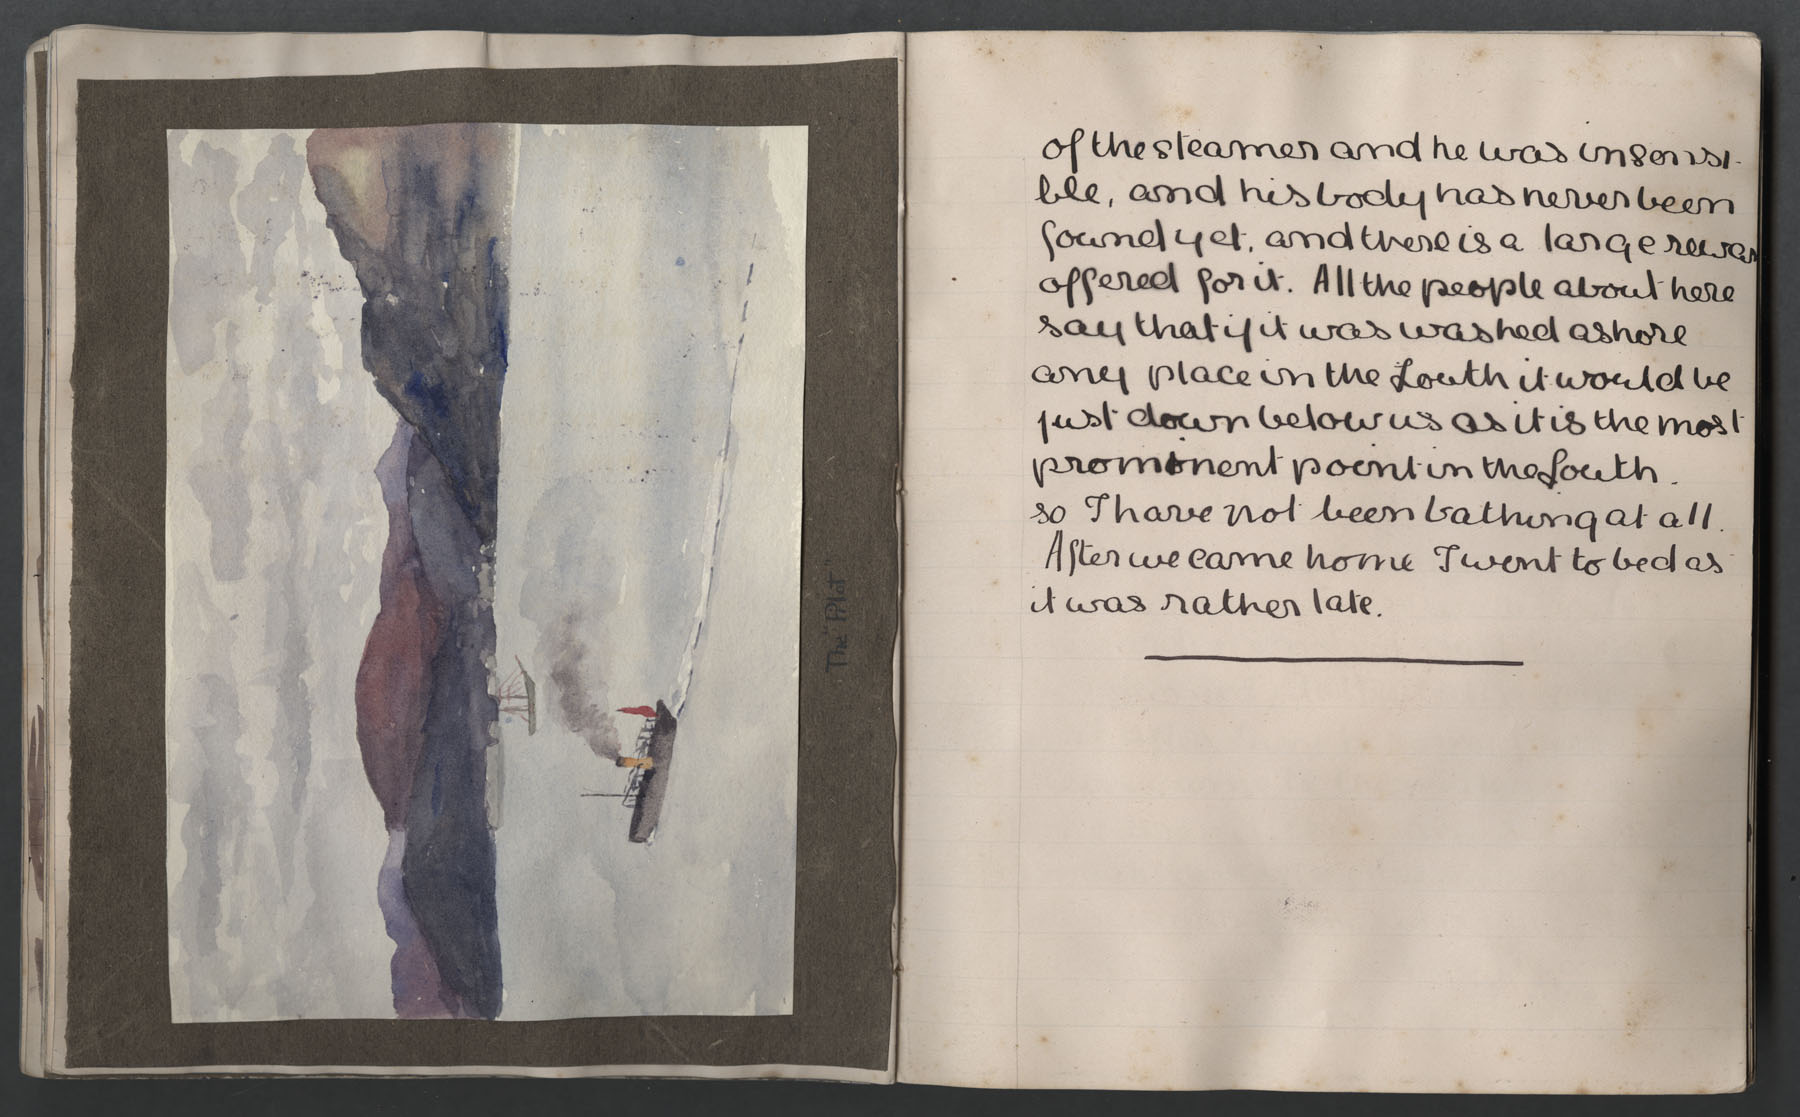 The "Pilot"
of the steamer and he was insensi-
ble, and his body has never been
found yet, and there is a large rewar
offered for it. All the people about here
say that if it was washed ashore
any place in the Louth it would be
just down below us as it is the most
prominent point in the Louth.
so I have not been bathing at all.
After we came home I went to bed as
it was rather late.